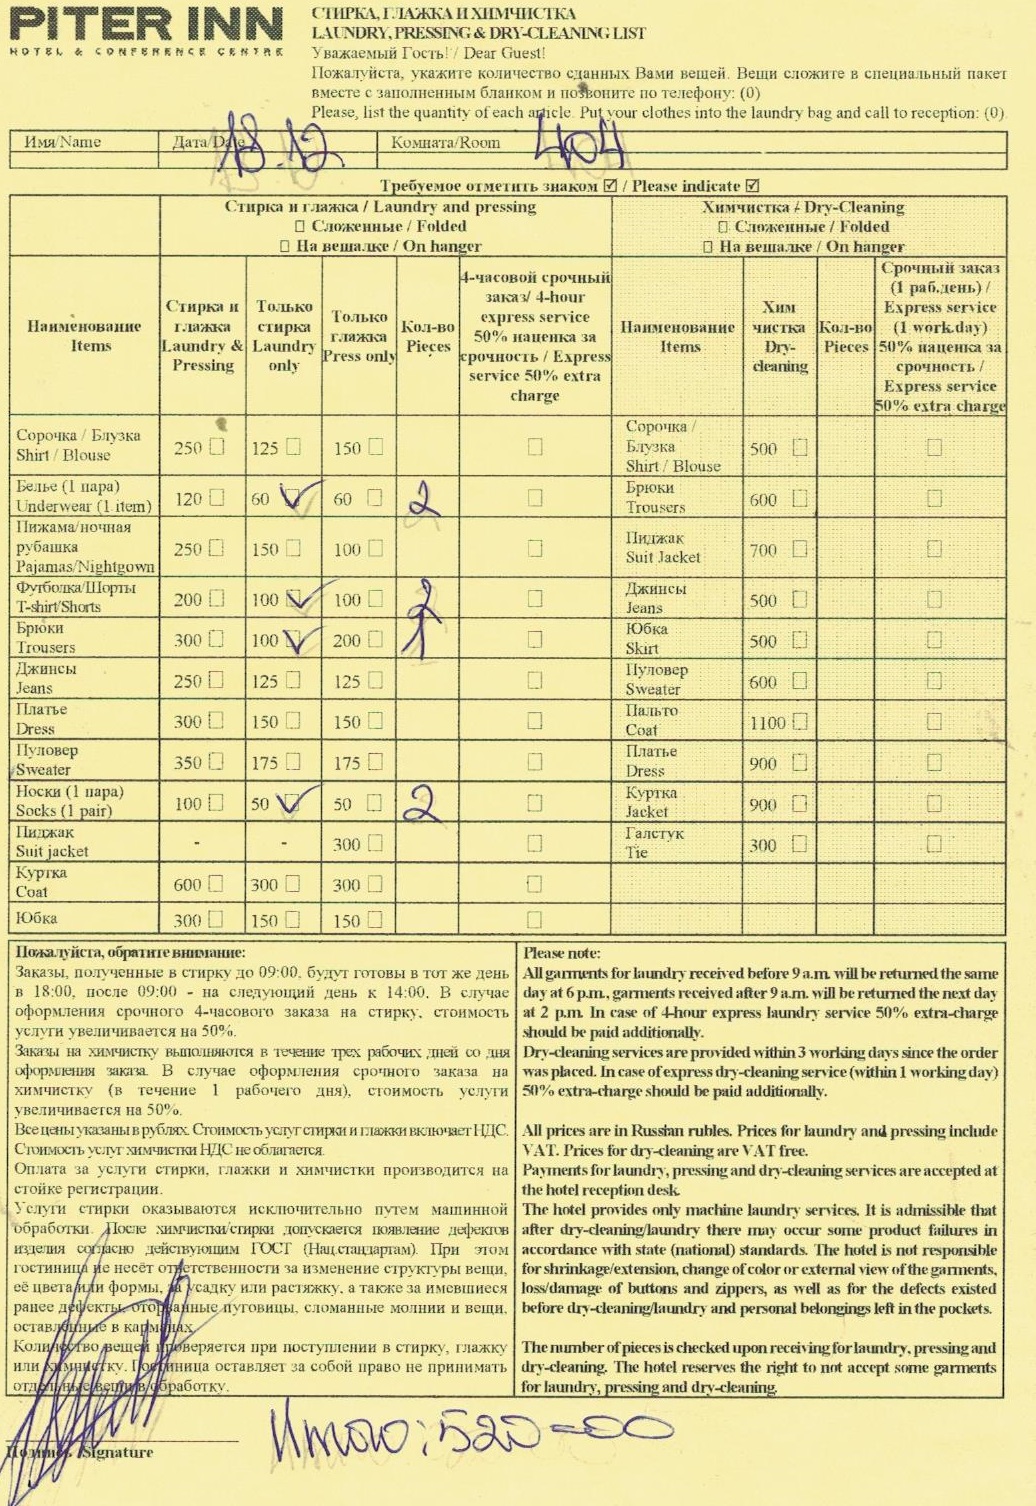 PITER INN
HOTEL & CONFERENCE CENTRE
СТИРКА, ГЛАЖКА И ХИМЧИСТКА
LAUNDRY, PRESSING & DRY-CLEANING LIST
Уважаемый Гость! / Dear Guest!
Пожалуйста, укажите количество сданных Вами вещей. Вещи сложите в специальный пакет
вместе с заполненным бланком и позвоните по телефону: (0)
Please, list the quantity of each article. Put your clothes into the laundry bag and call to reception: (0).
Имя/Name Дата/Date 18.12 Комната/Room 404
Требуемое отметить знаком ☑ / Please indicate ☑
Стирка и глажка / Laundry and pressing
☐ Сложенные / Folded
☐ На вешалке / On hanger
Химчистка / Dry-Cleaning
☐ Сложенные / Folded
☐ На вешалке / On hanger
Наименование
Items
Стирка и
глажка
Laundry &
Pressing
Только
стирка
Laundry
only
Только
глажка
Press only
Кол-во
Pieces
4-часовой срочный
заказ/ 4-hour
express service
50% наценка за
срочность / Express
service 50% extra
charge
Наименование
Items
Хим
чистка
Dry-
cleaning
Кол-во
Pieces
Срочный заказ
(1 раб.день) /
Express service
(1 work.day)
50% наценка за
срочность /
Express service
50% extra charge
Сорочка / Блузка
Shirt / Blouse
250 ☐ 125 ☐ 150 ☐ ☐
Сорочка /
Блузка
Shirt / Blouse
500 ☐ ☐
Белье (1 пара)
Underwear (1 item)
120 ☐ 60 ☑ 60 ☐ 2 ☐
Брюки
Trousers
600 ☐ ☐
Пижама/ночная
рубашка
Pajamas/Nightgown
250 ☐ 150 ☐ 100 ☐ ☐
Пиджак
Suit Jacket
700 ☐ ☐
Футболка/Шорты
T-shirt/Shorts
200 ☐ 100 ☑ 100 ☐ 2 ☐
Джинсы
Jeans
500 ☐ ☐
Брюки
Trousers
300 ☐ 100 ☑ 200 ☐ 1 ☐
Юбка
Skirt
500 ☐ ☐
Джинсы
Jeans
250 ☐ 125 ☐ 125 ☐ ☐
Пуловер
Sweater
600 ☐ ☐
Платье
Dress
300 ☐ 150 ☐ 150 ☐ ☐
Пальто
Coat
1100 ☐ ☐
Пуловер
Sweater
350 ☐ 175 ☐ 175 ☐ ☐
Платье
Dress
900 ☐ ☐
Носки (1 пара)
Socks (1 pair)
100 ☐ 50 ☑ 50 ☐ 2 ☐
Куртка
Jacket
900 ☐ ☐
Пиджак
Suit jacket
- - 300 ☐ ☐
Галстук
Tie
300 ☐ ☐
Куртка
Coat
600 ☐ 300 ☐ 300 ☐ ☐
Юбка 300 ☐ 150 ☐ 150 ☐ ☐
Пожалуйста, обратите внимание:
Заказы, полученные в стирку до 09:00, будут готовы в тот же день
в 18:00, после 09:00 - на следующий день к 14:00. В случае
оформления срочного 4-часового заказа на стирку, стоимость
услуги увеличивается на 50%.
Заказы на химчистку выполняются в течение трех рабочих дней со дня
оформления заказа. В случае оформления срочного заказа на
химчистку (в течение 1 рабочего дня), стоимость услуги
увеличивается на 50%.
Все цены указаны в рублях. Стоимость услуг стирки и глажки включает НДС.
Стоимость услуг химчистки НДС не облагается.
Оплата за услуги стирки, глажки и химчистки производится на
стойке регистрации.
Услуги стирки оказываются исключительно путем машинной
обработки. После химчистки/стирки допускается появление дефектов
изделия согласно действующим ГОСТ (Нац.стандартам). При этом
гостиница не несёт ответственности за изменение структуры вещи,
её цвета или формы, за усадку или растяжку, а также за имевшиеся
ранее дефекты, оторванные пуговицы, сломанные молнии и вещи,
оставленные в карманах.
Количество вещей проверяется при поступлении в стирку, глажку
или химчистку. Гостиница оставляет за собой право не принимать
отдельные вещи в обработку.
Please note:
All garments for laundry received before 9 a.m. will be returned the same
day at 6 p.m., garments received after 9 a.m. will be returned the next day
at 2 p.m. In case of 4-hour express laundry service 50% extra-charge
should be paid additionally.
Dry-cleaning services are provided within 3 working days since the order
was placed. In case of express dry-cleaning service (within 1 working day)
50% extra-charge should be paid additionally.
All prices are in Russian rubles. Prices for laundry and pressing include
VAT. Prices for dry-cleaning are VAT free.
Payments for laundry, pressing and dry-cleaning services are accepted at
the hotel reception desk.
The hotel provides only machine laundry services. It is admissible that
after dry-cleaning/laundry there may occur some product failures in
accordance with state (national) standards. The hotel is not responsible
for shrinkage/extension, change of color or external view of the garments,
loss/damage of buttons and zippers, as well as for the defects existed
before dry-cleaning/laundry and personal belongings left in the pockets.
The number of pieces is checked upon receiving for laundry, pressing and
dry-cleaning. The hotel reserves the right to not accept some garments
for laundry, pressing and dry-cleaning.
Подпись /Signature
Итого: 520=00